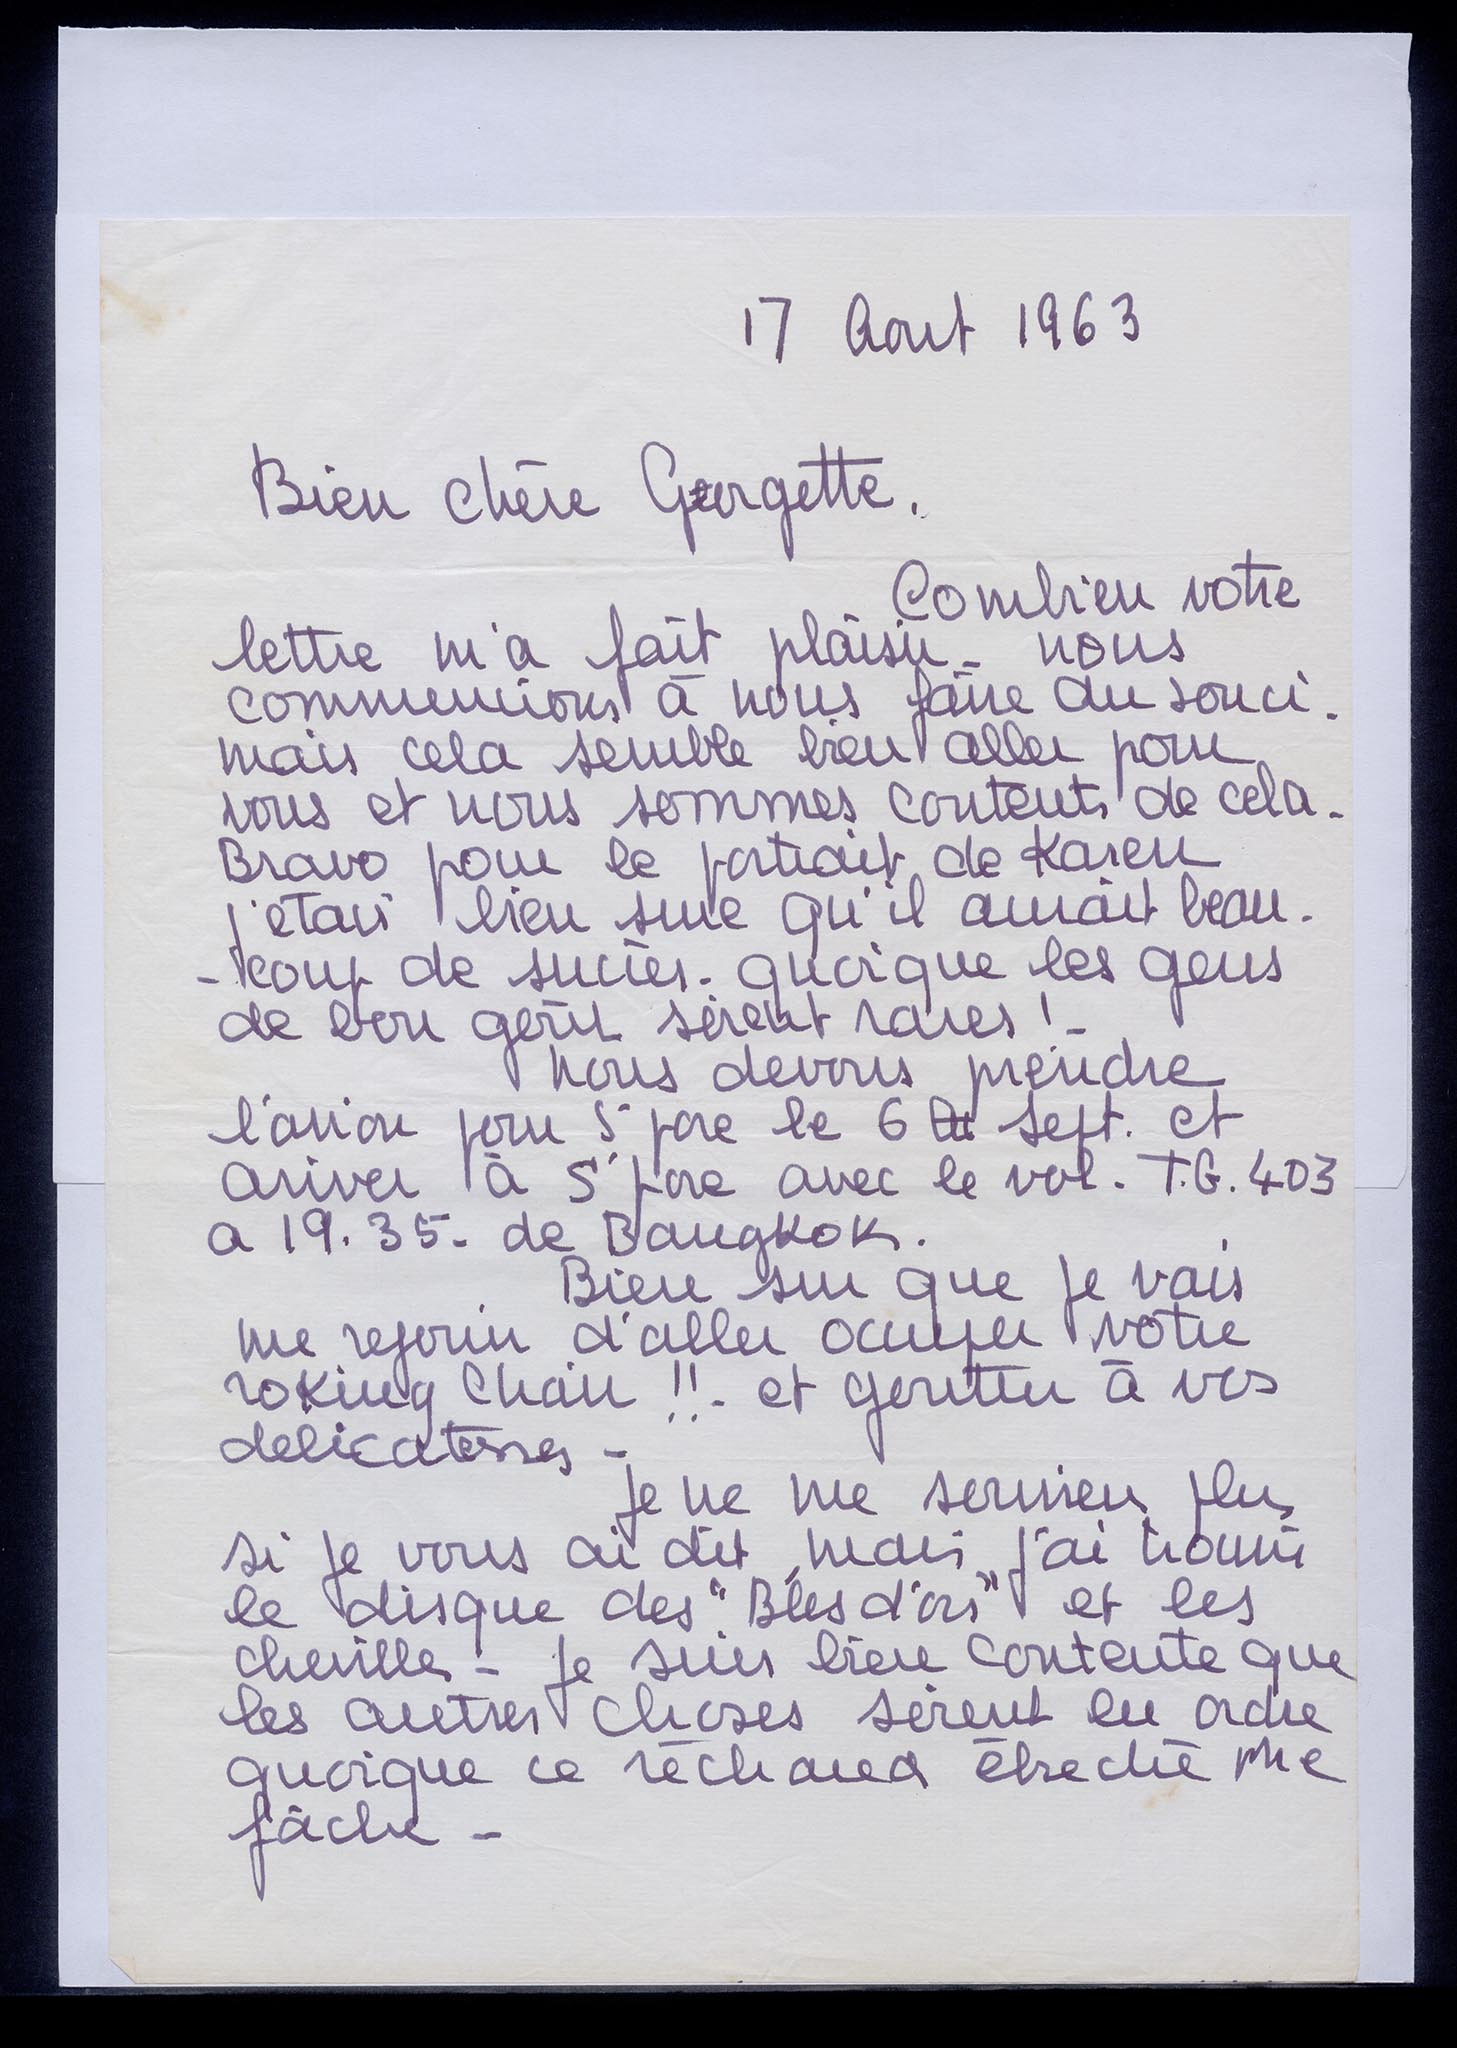 17 Aout 1963
Bien chère Georgette.
Combien votre
lettre m'a fait plaisir - nous
commencions à nous faire du souci.
mais cela semble bien aller pour
vous et nous sommes contents de cela -
Bravo pour le portrait de Karen
j'étais bien sure qu'il aurait beau -
- coup de succès - quoique les gens
de bon goût soient rares ! -
nous devons prendre
l'avion pour S'pore le 6 sept. et
ariver à S'pore avec le vol - T.G. 403
a 19.35 - de Bangkok.
Bien sur que je vais
me rejouir d'aller occuper votre
roking chair !! - et goutter à vos
delicatesses -
je ne me souviens plus
si je vous ai dit, mais j'ai trouvé
le disque des "Blés d'ors" et les
chevilles - je suis bien contente que
les autres choses soient en ordre
quoique ce réchaud ébreché me
fâche -